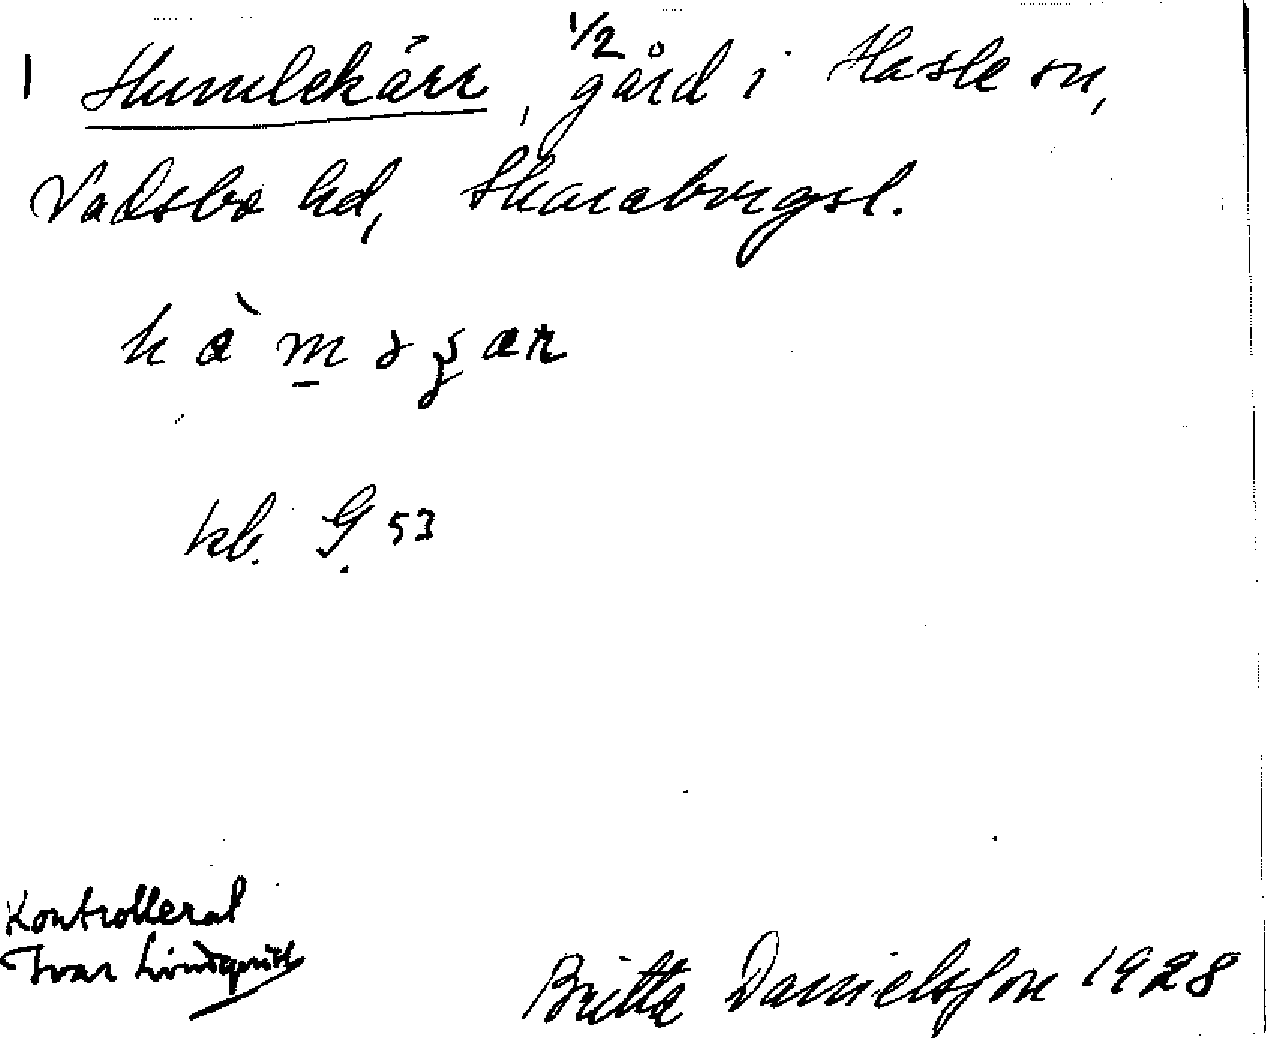 1 Humlekärr, 1/2 gård i Hasle sn,
Vadsbo hd, Skaraborgsl.
kb. G. 53
Kontrollerat
Ivar Lindquist
Britta Danielsson 1928